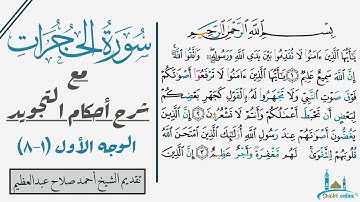 سورة الحجرات
مع
شرح أحكام التجويد
الوجه الأول (١-٨)
تقديم الشيخ أحمد صلاح عبدالعظيم
بِسْمِ ٱللَّهِ ٱلرَّحْمَٰنِ ٱلرَّحِيمِ
يَٰٓأَيُّهَا ٱلَّذِينَ ءَامَنُوا۟ لَا تُقَدِّمُوا۟ بَيْنَ يَدَىِ ٱللَّهِ وَرَسُولِهِۦ وَٱتَّقُوا۟ ٱللَّهَ
إِنَّ ٱللَّهَ سَمِيعٌ عَلِيمٌ ١ يَٰٓأَيُّهَا ٱلَّذِينَ ءَامَنُوا۟ لَا تَرْفَعُوٓا۟ أَصْوَٰتَكُمْ
فَوْقَ صَوْتِ ٱلنَّبِىِّ وَلَا تَجْهَرُوا۟ لَهُۥ بِٱلْقَوْلِ كَجَهْرِ بَعْضِكُمْ
لِبَعْضٍ أَن تَحْبَطَ أَعْمَٰلُكُمْ وَأَنتُمْ لَا تَشْعُرُونَ ٢ إِنَّ ٱلَّذِينَ
يَغُضُّونَ أَصْوَٰتَهُمْ عِندَ رَسُولِ ٱللَّهِ أُو۟لَٰٓئِكَ ٱلَّذِينَ ٱمْتَحَنَ ٱللَّهُ
قُلُوبَهُمْ لِلتَّقْوَىٰ لَهُم مَّغْفِرَةٌ وَأَجْرٌ عَظِيمٌ ٣ إِنَّ ٱلَّذِينَ
Sheikh online